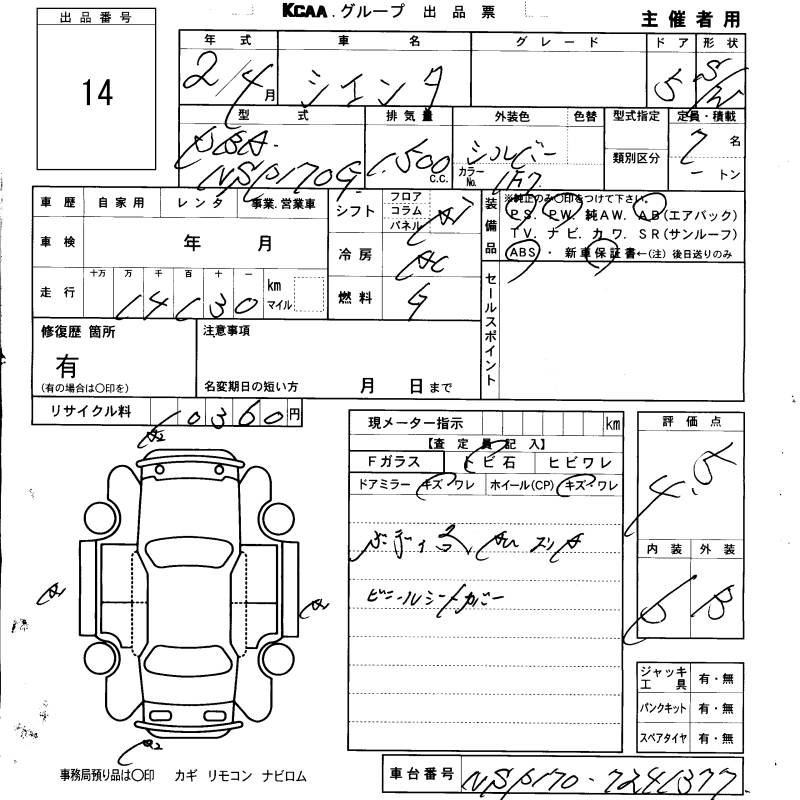 KCAA.グループ 出品票
主催者用
出品番号
14
年式 車名 グレード ドア 形状
2/4月 シエンタ 5 S/W
型式 排気量 外装色 色替 型式指定 定員・積載
DBA- 1,500 c.c. シルバー 類別区分 7名
NSP170G カラーNo. 1F7 - トン
車歴 自家用 レンタ 事業.営業車
車検 年 月
走行 十万 万 千 百 十 一 km マイル
14130
シフト フロア コラム パネル AT
冷房 AC
燃料 G
装備品 ※純正のみ○印をつけて下さい。
PS. PW. 純AW. AB(エアバック)
TV. ナビ. カワ. SR(サンルーフ)
ABS ・ 新車保証書←(注)後日送りのみ
セールスポイント
修復歴 箇所
有
(有の場合は○印を)
注意事項
名変期日の短い方 月 日まで
リサイクル料 10360円
現メーター指示 km
【査定員記入】
Fガラス トビ石 ヒビワレ
ドアミラー キズ・ワレ ホイール(CP) キズ・ワレ
ボディ 小 スリA
ビニールシートカバー
評価点
4.5
内装 外装
B B
A2
A1
A1
A2
ジャッキ工具 有・無
パンクキット 有・無
スペアタイヤ 有・無
事務局預り品は○印 カギ リモコン ナビロム
車台番号 NSP170-7241377